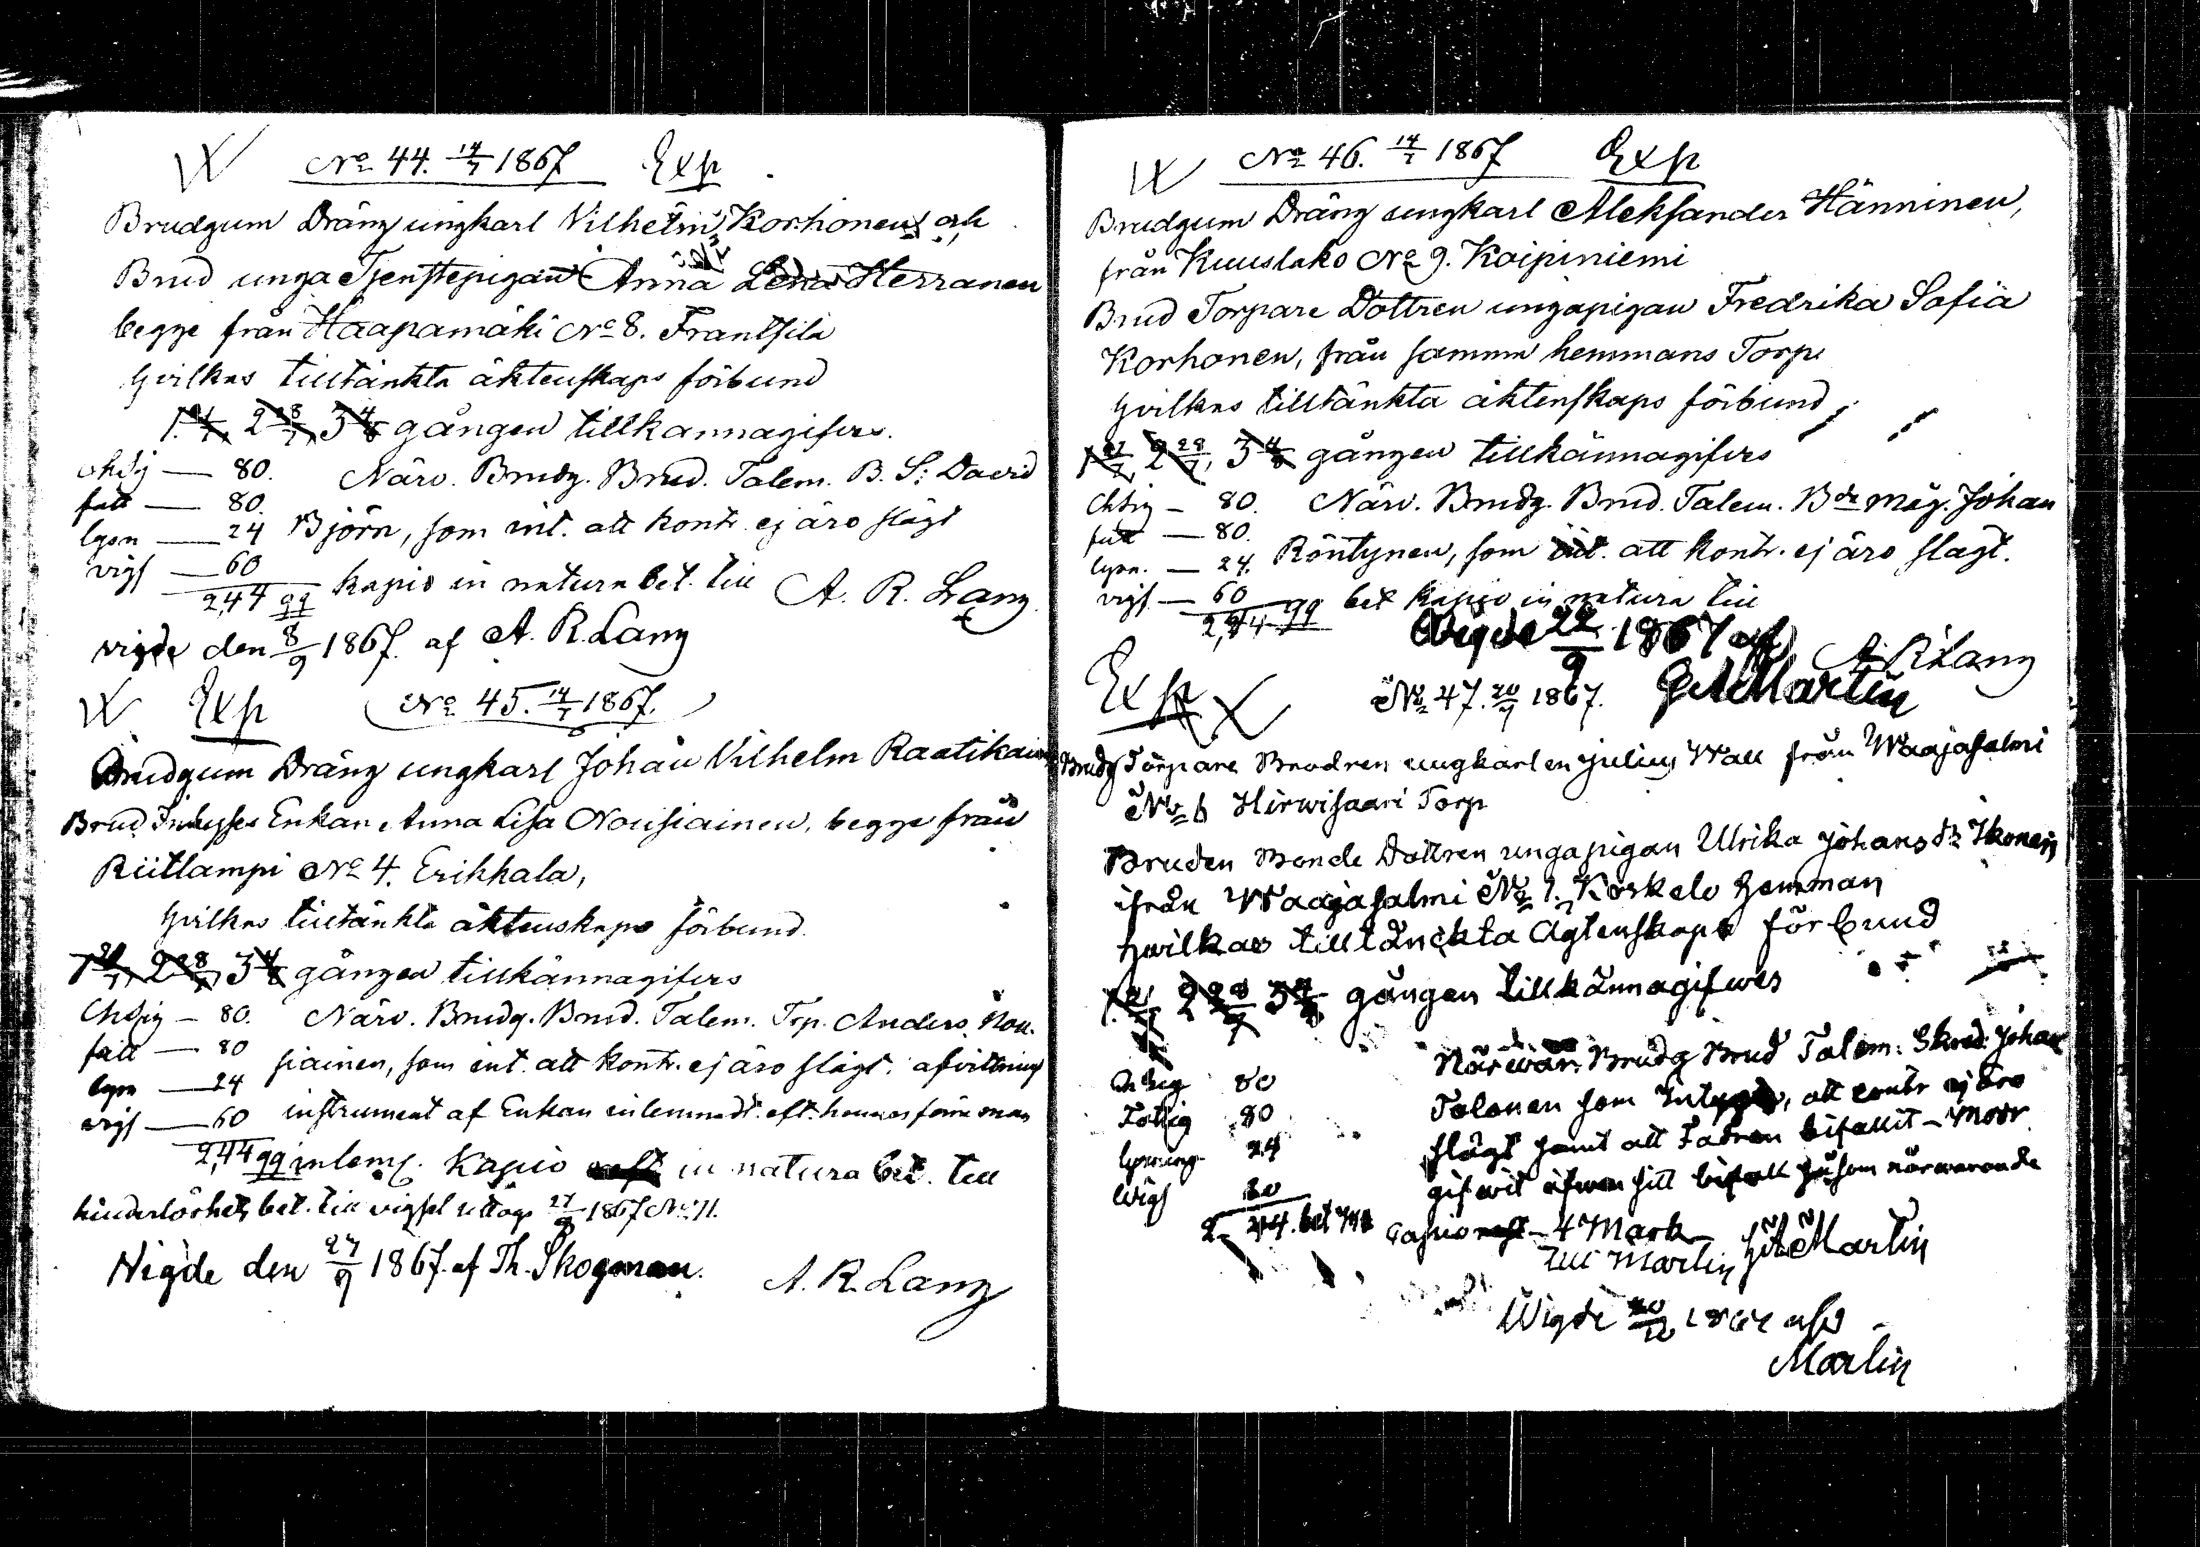 No 44. 14/7 1867 Exp
Brudgum Dräng ungkarl Vilhelm Korhonen och
Brud unga Tjenstepigan Anna Lena Herranen
begge från Haapamäki No 8. Frantsila
hvilkas tilltänkta äktenskaps förbund
1. 21/7, 2 28/7, 3 4/8 gången tillkännagifves.
chsig — 80. Närv. Brudg. Brud. Talem. B. S: David
fatt — 80.
lysn — 24 Björn, som int. att kontr. ej äro slägt
vigs — 60
2,44 99 kapio in natura bet. till A. R. Lang
vigde den 8/9 1867. af A. R. Lang
Exp No 45. 14/7 1867.
Brudgum Dräng ungkarl Johan Vilhelm Raatikain
Brud Inhyses Enkan Anna Lisa Nousiainen, begge från
Riitlampi No 4. Erikkala,
hvilkas tilltänkta äktenskaps förbund
1 21/7, 2 28/7, 3 4/8 gången tillkännagifves
Chsig — 80. Närv. Brudg. Brud. Talem. Trp. Anders Nou-
fatt — 80
siainen, som int. att kontr. ej äro slägt. afvittrings
lysn — 24
vigs — 60 instrument af Enkan inlemnadt eft. hennes förra man
2,44 99 inlemn. Kapio in natura bet. till
hinderlöshets bet. till vigsel uttogs 27/9 1867 No 11.
Vigde den 27/9 1867. af Th. Skogman.
A. R. Lang
No 46. 14/7 1867 Exp
Brudgum Dräng ungkarl Aleksander Hänninen,
från Kuuslako No 9. Koipiniemi
Brud Torpare Dottren ungapigan Fredrika Sofia
Korhonen, från samma hemmans Torp
hvilkas tilltänkta äktenskaps förbund
1 21/7, 2 28/7, 3 4/8 gången tillkännagifves
Chsig — 80. Närv. Brudg. Brud. Talem. Bds måg. Johan
fatt — 80.
lysn. — 24. Röntynen, som int. att kontr. ej äro slägt.
vigs — 60
2,44 99 bet kapio in natura till
Vigde 22/9 1867 af A. R. Lang
G A Martin
Exp No 47. 20/7 1867.
Brudg Torpare Brodren ungkarlen Julius Wall från Waajasalmi
No 6 Hirwisaari Torp
Bruden Bonde Dottren ungapigan Ulrika Johansdr Ikonen
ifrån Waajasalmi No 1. Koskelo hemman
hwilkas tilltänckta Agtenskaps förbund
1 21/7 2 28/7 3 4/8 gången tillkännagifwes
Närwar. Brudg Brud Talem: Skred: Johan
Chsig 80
Tolonen som Intygade, att contr ej äro
Fattig 80
slägt samt att Fadren bifallit — Modr
lysning 24
gifwit äfwen sitt bifall såsom närwarande
Wigs 60
2 — 44. bet Capio — 4 Mark
till Martin G A Martin
Wigde 26/12 1867 af
Martin